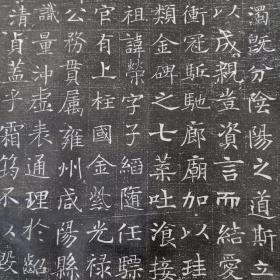 濁既分陰陽之道斯之
以成親豈資言而結愛
衝冠駈馳廊廟加以珪
類金碑之七葉吐湌接
祖諱榮字子縚隨任驃
官有上柱國金紫光祿
公務貫屬雍州咸陽縣
識量沖虛表通理於
清貞蓋乎霜筠不以